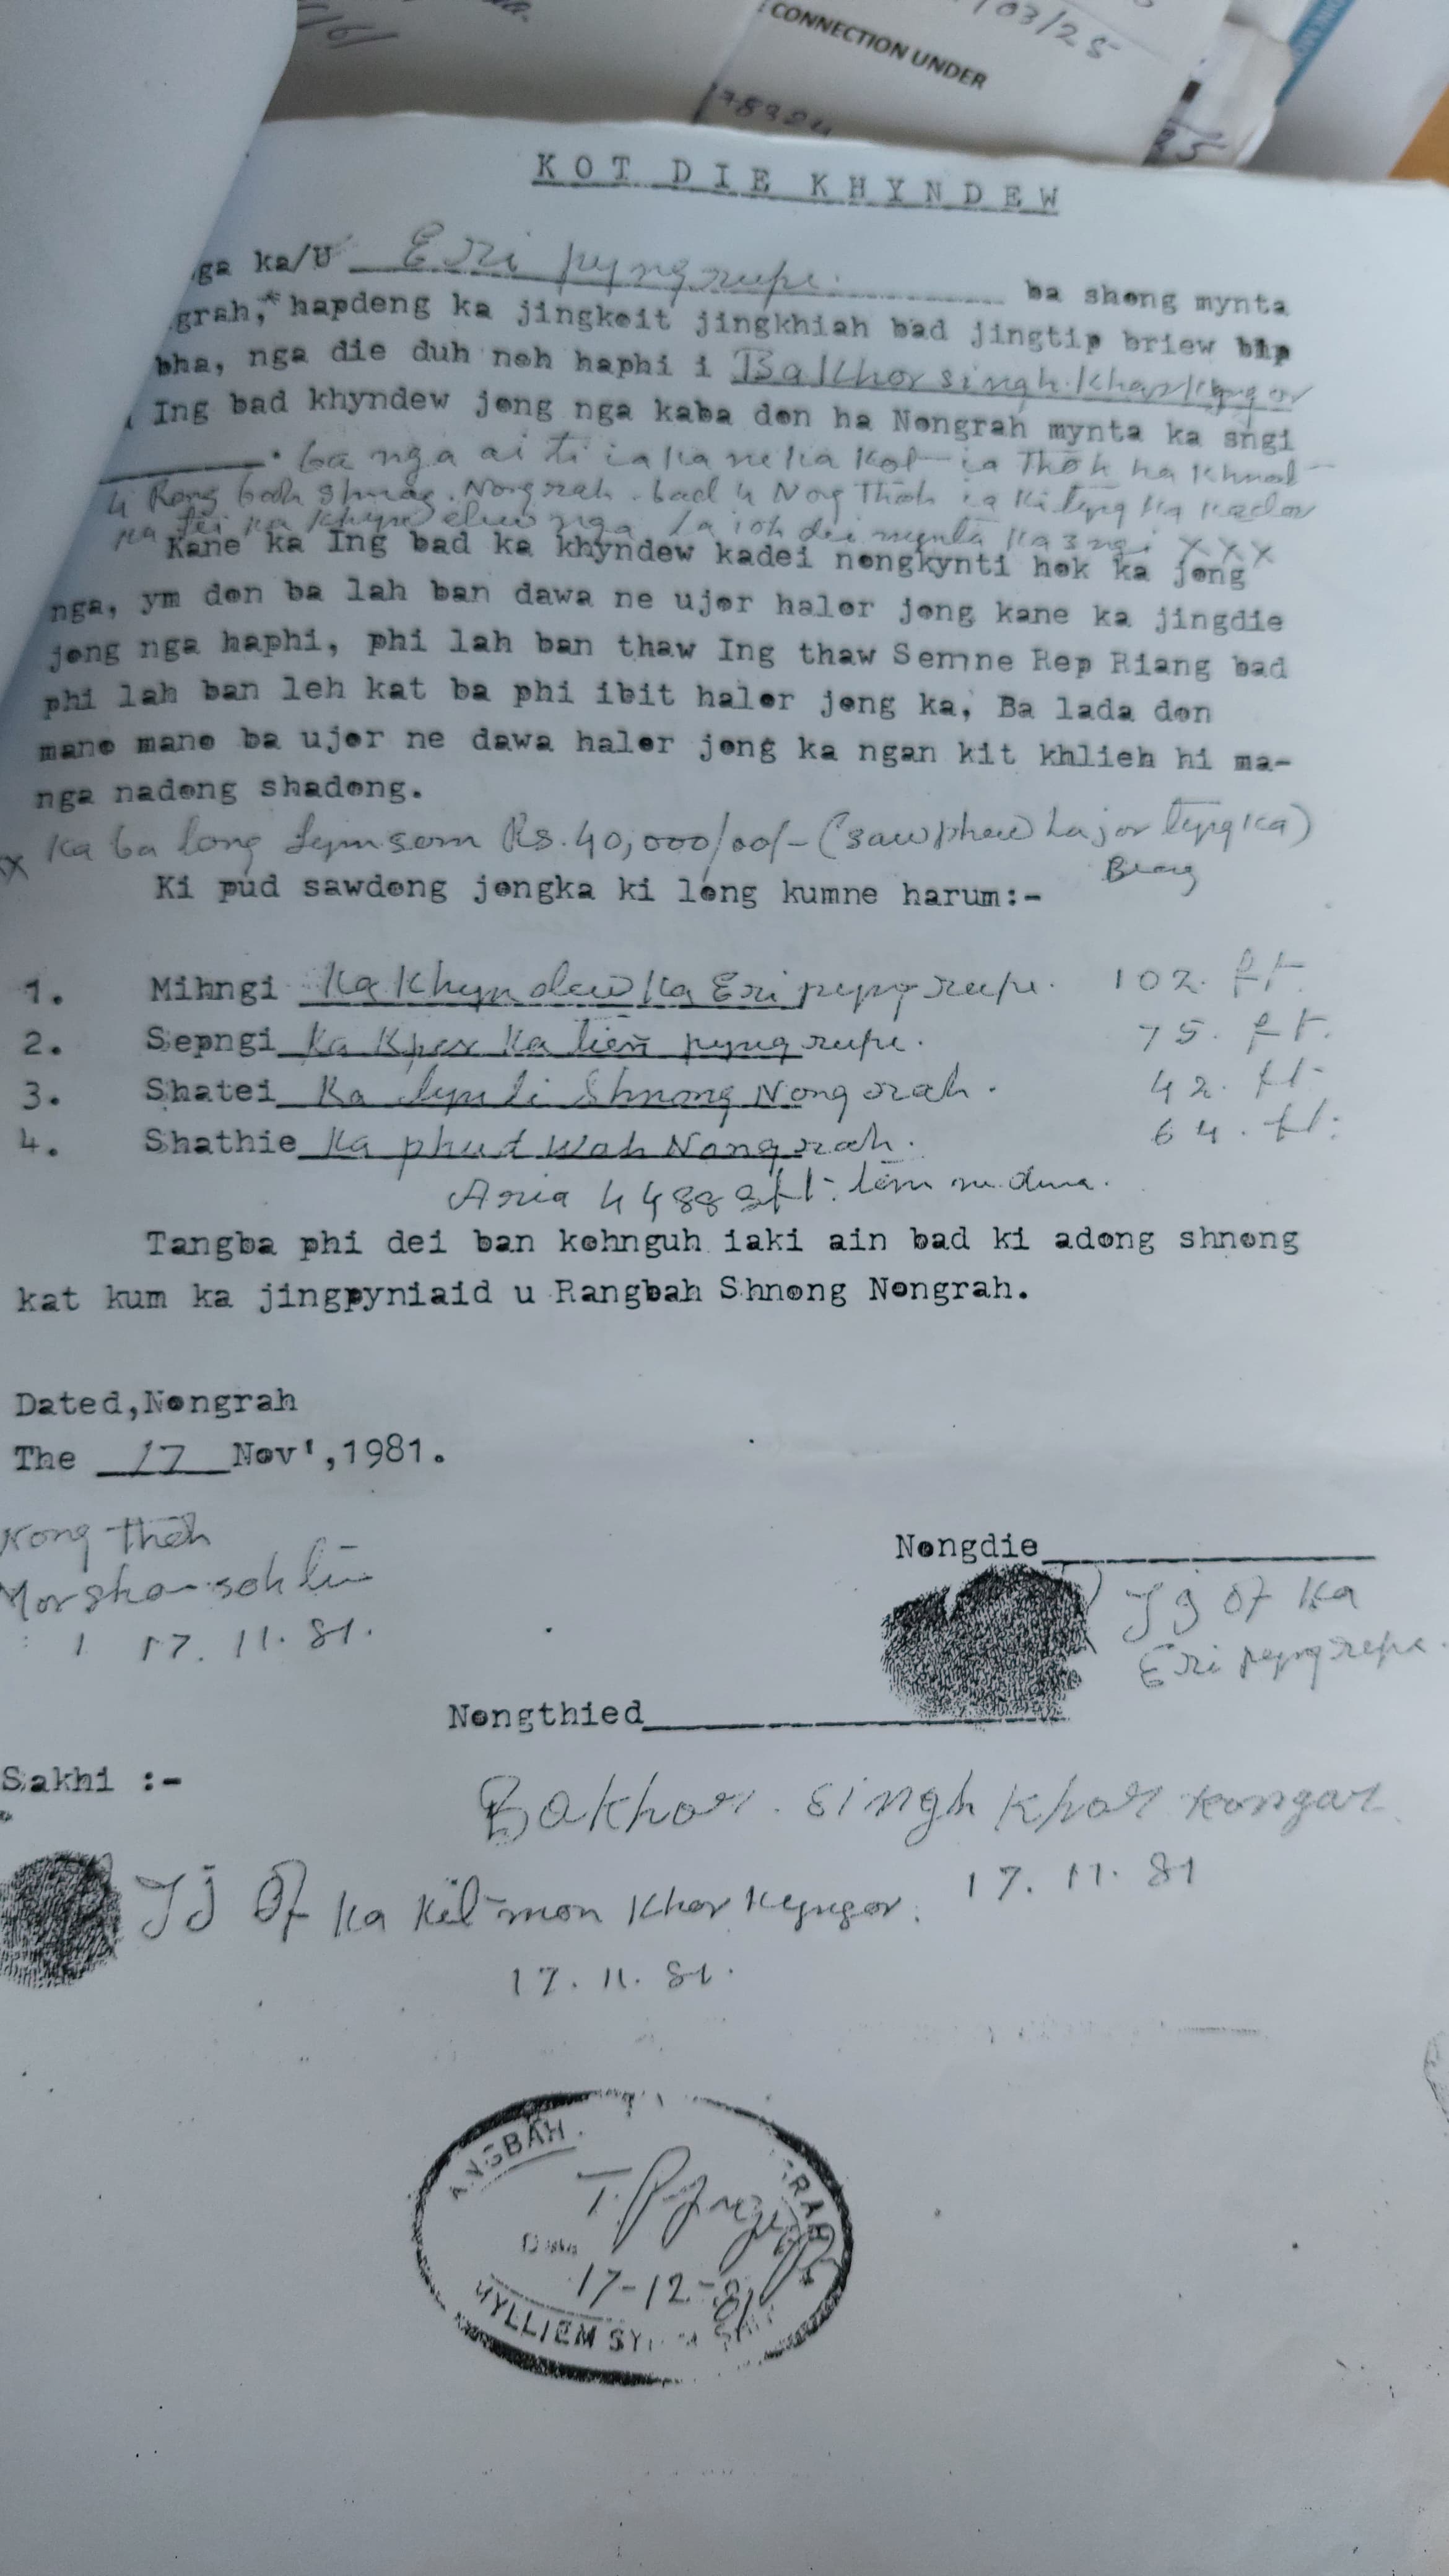 /03/25
CONNECTION UNDER
78924
KOT DIE KHYNDEW
ga ka/U Eri pyngrupe. ba shong mynta
grah,* hapdeng ka jingkoit jingkhiah bad jingtip briew bhp
bha, nga die duh noh haphi i Bakhor singh. Kharkyngor
Ing bad khyndew jong nga kaba don ha Nongrah mynta ka sngi
. ba nga ai ti ia ka ne ka Kot ia Thoh ha khmat
u Rangbah Shnong. Nongrah. bad u Nong Thoh ia ki tyngka kador
ka jei ka khyndew nga la ioh dei mynta ka sngi XXX
Kane ka Ing bad ka khyndew kadei nongkynti hok ka jong
nga, ym don ba lah ban dawa ne ujor halor jong kane ka jingdie
jong nga haphi, phi lah ban thaw Ing thaw Semne Rep Riang bad
phi lah ban leh kat ba phi ibit halor jong ka, Ba lada don
mano mano ba ujor ne dawa halor jong ka ngan kit khlieh hi ma-
nga nadong shadong.
XX Ka ba long lymsom Rs. 40,000/00/- (saw phew hajor tyngka)
Ki pud sawdong jongka ki long kumne harum:-
1. Mihngi Ka Khyndew Ka Eri pyngrupe. 102. ft.
2. Sepngi Ka Kper Ka tien pyngrupe. 75. ft.
3. Shatei Ka lynti Shnong Nongrah. 42. ft.
4. Shathie Ka phud Wah Nongrah. 64. ft.
Aria 4488 sft.
Tangba phi dei ban kohnguh iaki ain bad ki adong shnong
kat kum ka jingpyniaid u Rangbah Shnong Nongrah.
Dated,Nongrah
The 17 Nov',1981.
Nong thoh
17. 11. 81.
Nongdie
TJ of Ka
Eri pyngrupe.
Nongthied
Sakhi :-
Bakhor. singh Khar kongor
17. 11. 81
TJ Of Ka Kilmon Kharkyngor.
17. 11. 81.
ANGBAH
RAH
17-12-81
MYLLIEM SY